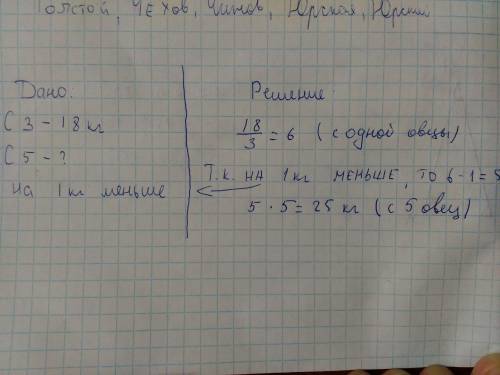 Толстой, Чехов, Чимов, Юрская, Юрский
Дано:
С 3 - 18 кг
С 5 - ?
на 1 кг меньше
Решение
18/3 = 6 (с одной овцы)
Т.к. на 1 кг меньше, то 6-1=5
5 · 5 = 25 кг (с 5 овец)